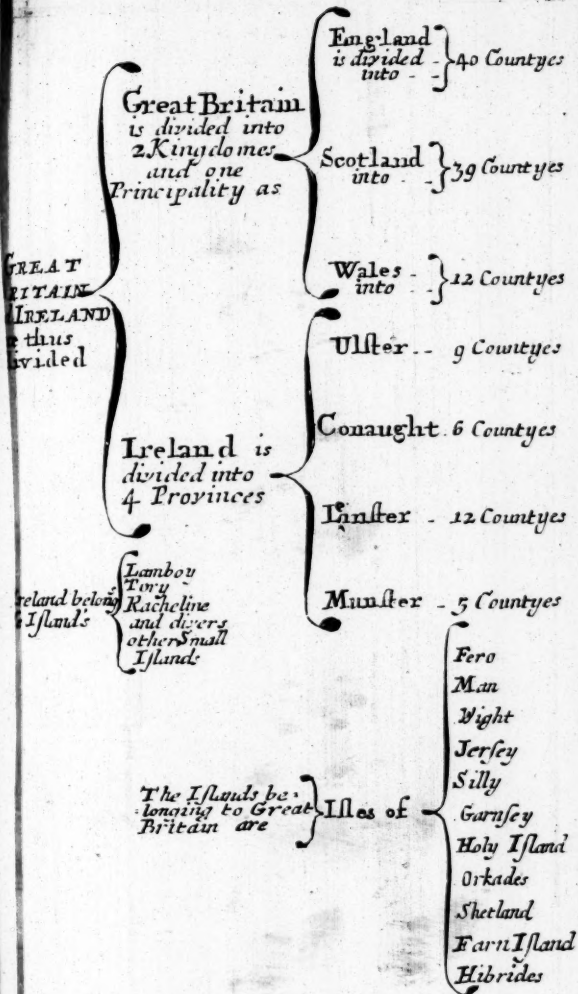 GREAT
RITAIN
IRELAND
thus
ivided
Great Britain
is divided into
2 Kingdomes
and one
Principality as
England
is divided
into
40 Countyes
Scotland
into
39 Countyes
Wales
into
12 Countyes
Ireland is
divided into
4 Provinces
Ulſter 9 Countyes
Conaught 6 Countyes
Linſter 12 Countyes
Munſter 5 Countyes
reland belong
Iſlands
Lamboy
Tory
Racheline
and divers
other Small
Iſlands
The Iſlands be-
longing to Great
Britain are
Iſles of
Fero
Man
Wight
Jerſey
Silly
Garnſey
Holy Iſland
Orkades
Shetland
Farn Iſland
Hibrides